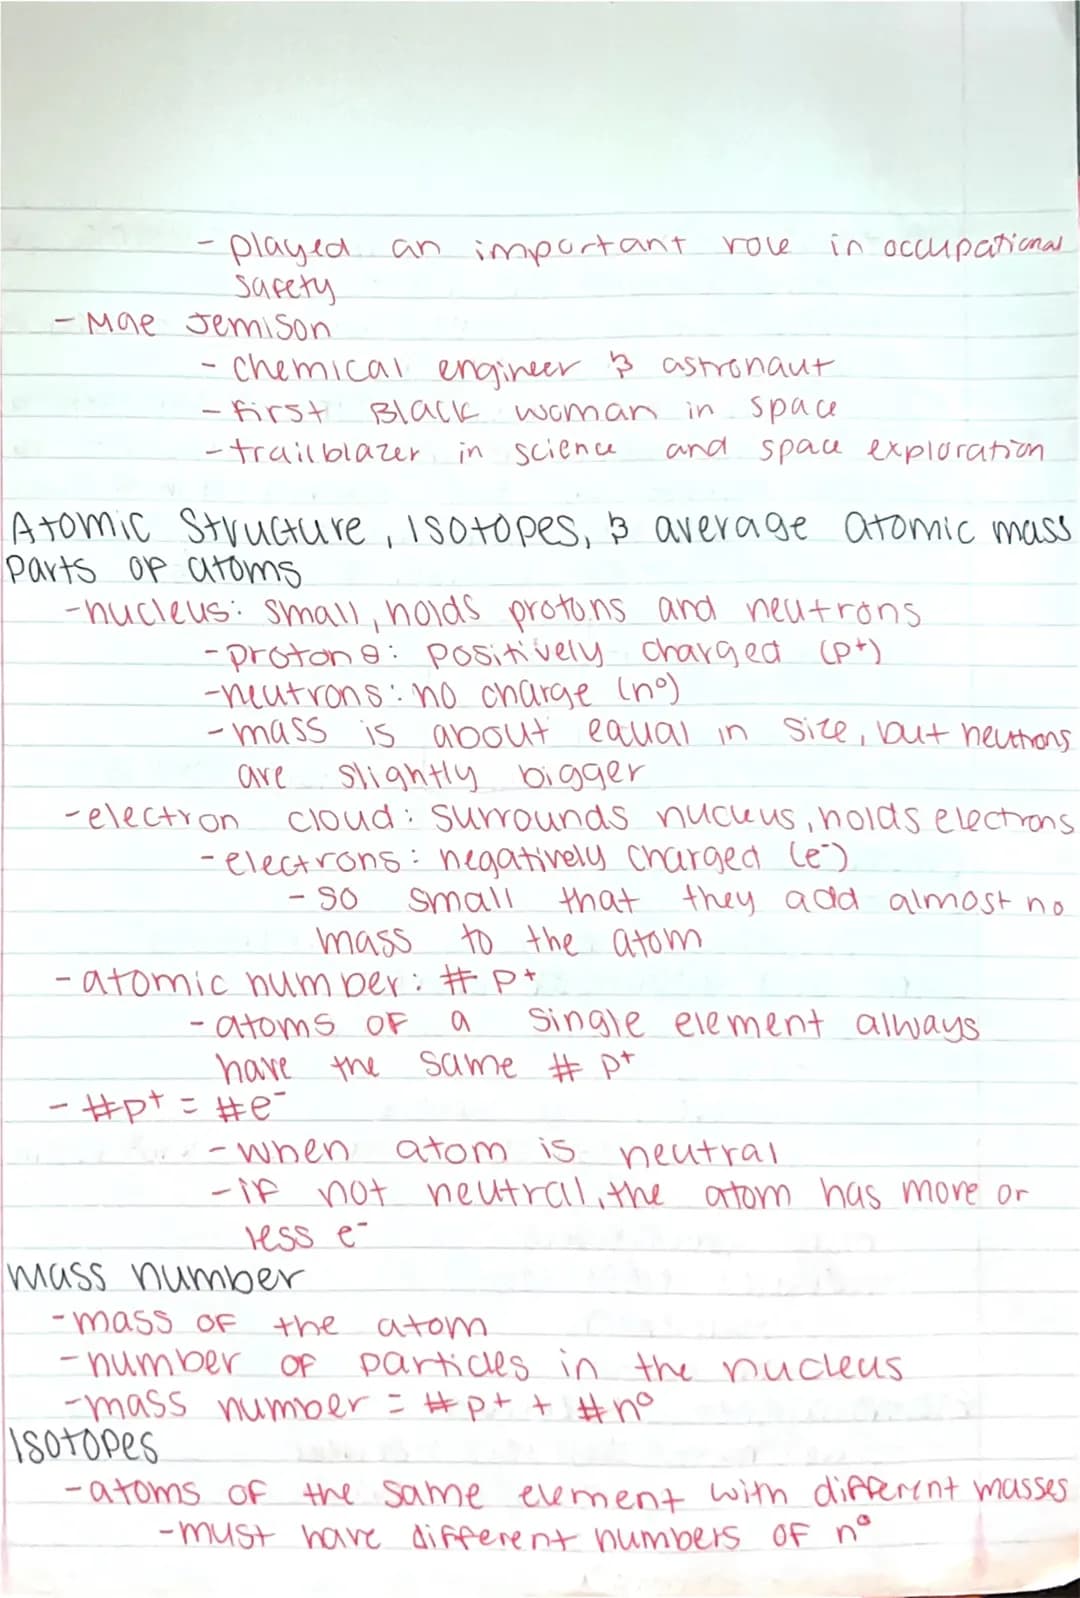 - played an important role in occupational
safety
- Mae Jemison
- chemical engineer & astronaut
- first Black woman in space
- trailblazer in science and space exploration
Atomic Structure, Isotopes, & average atomic mass
Parts of atoms
- nucleus: small, holds protons and neutrons
- protons: positively charged (p⁺)
- neutrons: no charge (n⁰)
- mass is about equal in size, but neutrons
are slightly bigger
- electron cloud: surrounds nucleus, holds electrons
- electrons: negatively charged (e⁻)
- so small that they add almost no
mass to the atom
- atomic number: # p⁺
- atoms of a single element always
have the same # p⁺
- #p⁺ = #e⁻
- when atom is neutral
- if not neutral, the atom has more or
less e⁻
mass number
- mass of the atom
- number of particles in the nucleus
- mass number = #p⁺ + #n⁰
Isotopes
- atoms of the same element with different masses
- must have different numbers of n⁰